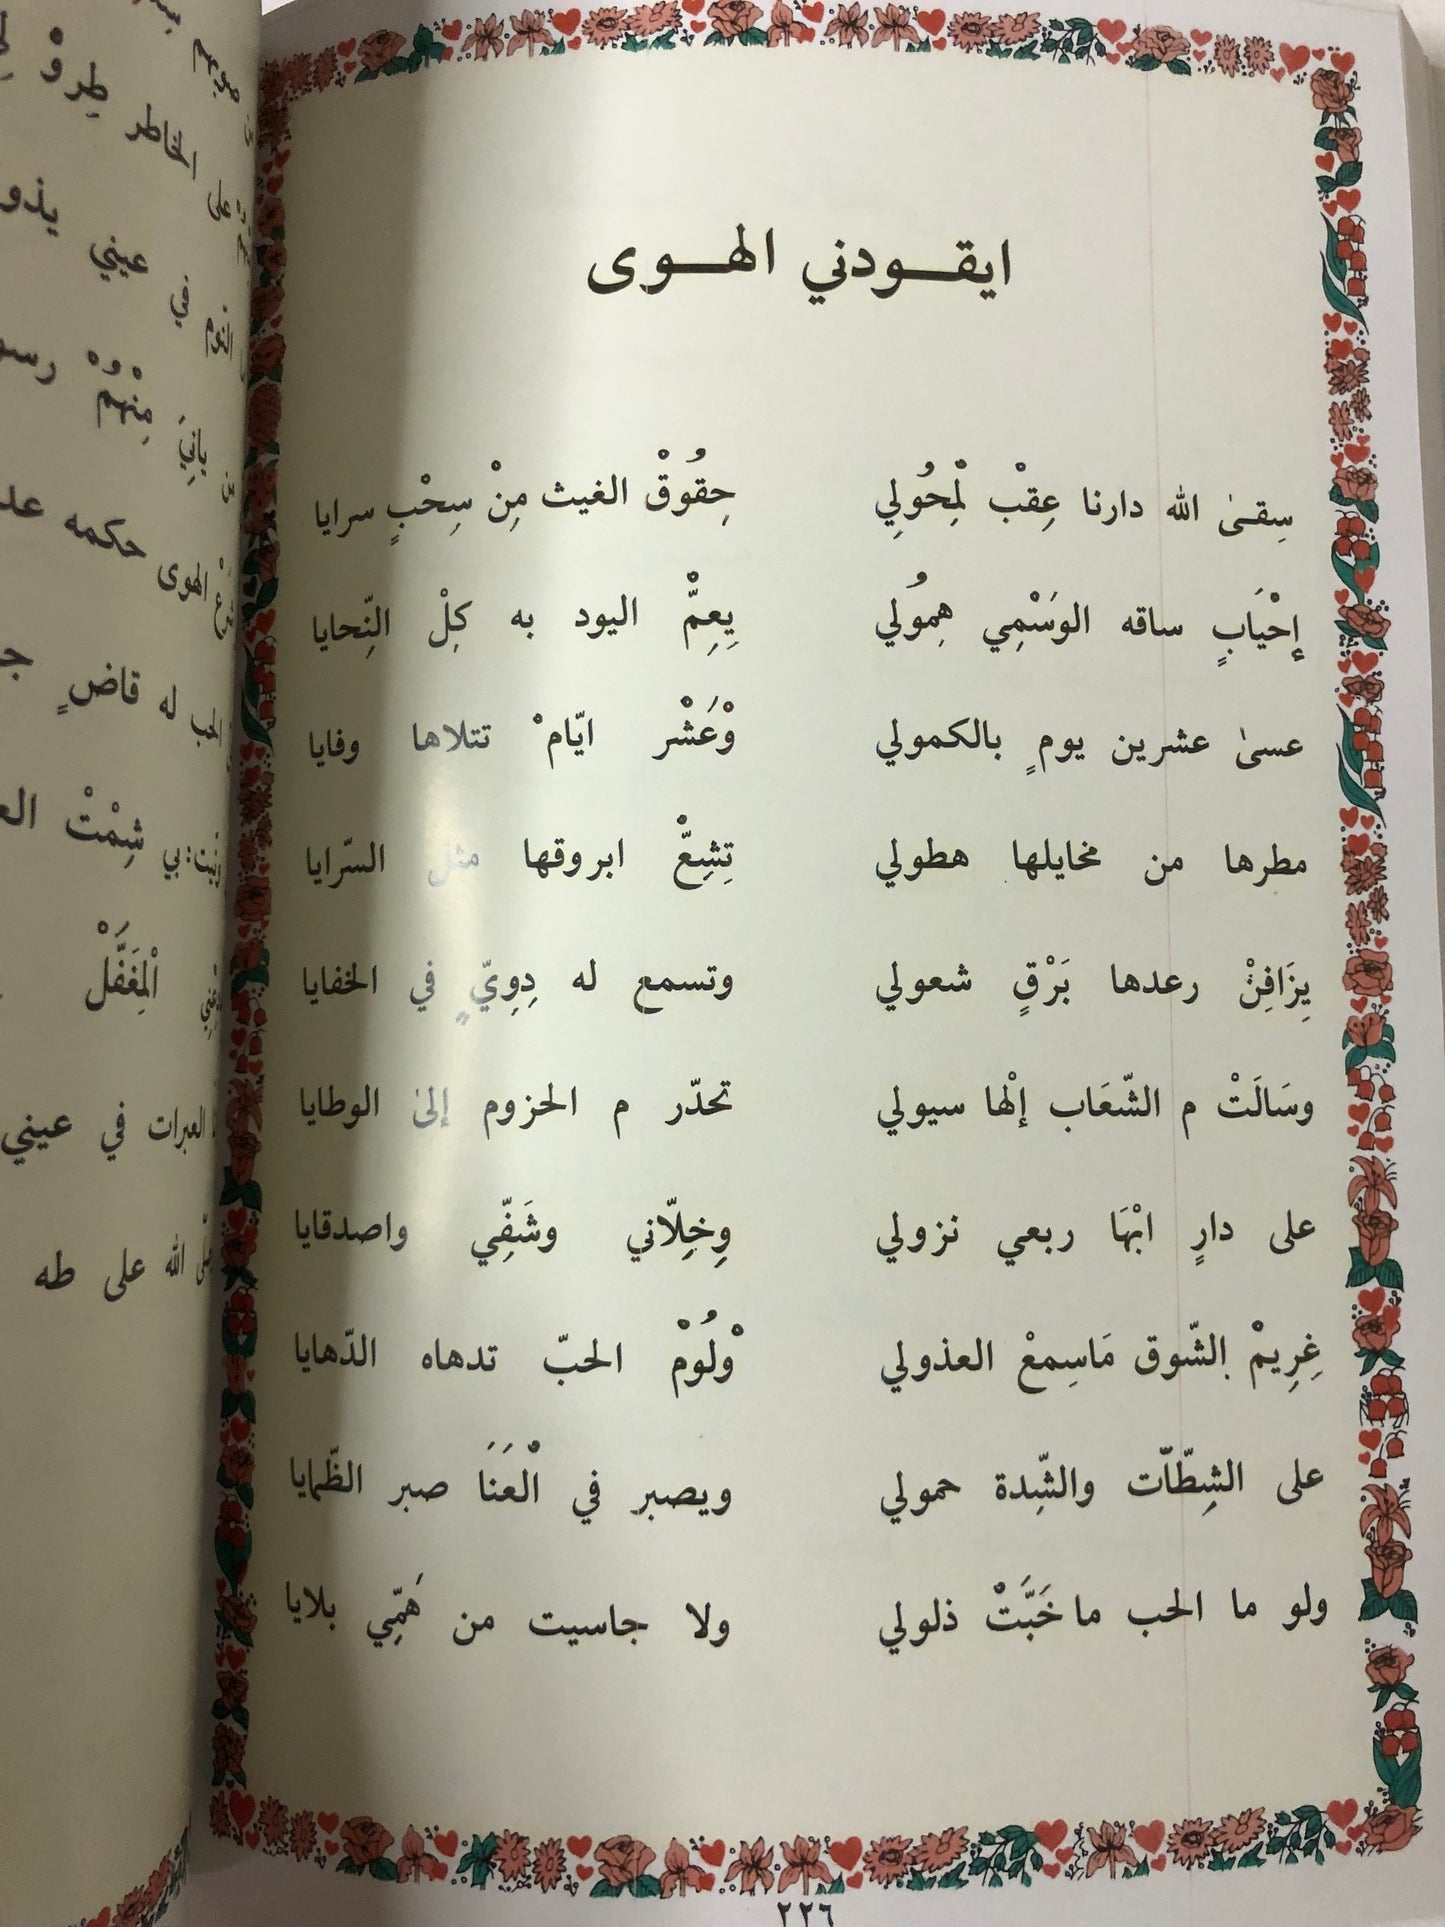 ايقودني الهوى
سِقىٰ الله دارنا عِقبْ لْمِحُولي حِقُوقْ الغيث مِنْ سِحْبٍ سرايا
إِحْيَابٍ ساقه الوَسْمِي هِمُولي يِعِمّْ اليود به كِلْ النِّحايا
عسىٰ عشرين يومٍ بالكمولي وْعَشْر ايّامْ تتلاها وفايا
مطرها من مخايلها هطولي تِشِعّْ ابروقها مثل السّرايا
يِزَافِنْ رعدها بَرْقٍ شعولي وتسمع له دِوِيّ في الخفايا
وسَالَتْ م الشّعَاب إلْها سيولي تحدّر م الحزوم إلىٰ الوطايا
على دارٍ ابْهَا ربعي نزولي وِخِلّاني وشَفِّي واصدقايا
غِرِيمْ الشّوق مَاسِمعْ العذولي وْلُومْ الحبّ تدهاه الدّهايا
على الشِطّات والشِّدة حمولي ويصبر في الْعَنَا صبر الظّمايا
ولو ما الحب ما خَبَّتْ ذلولي ولا جاسيت من هَمِّي بلايا
٢٢٦
على الخاطر طِروْ
في عيني يذو
النوم
يانِيَ مِنْهمْ
الهوى حكمه
الحب له قاضٍ
شِمْتْ
الْمِغَفَّلْ
العبرات في عيني
الله على طه